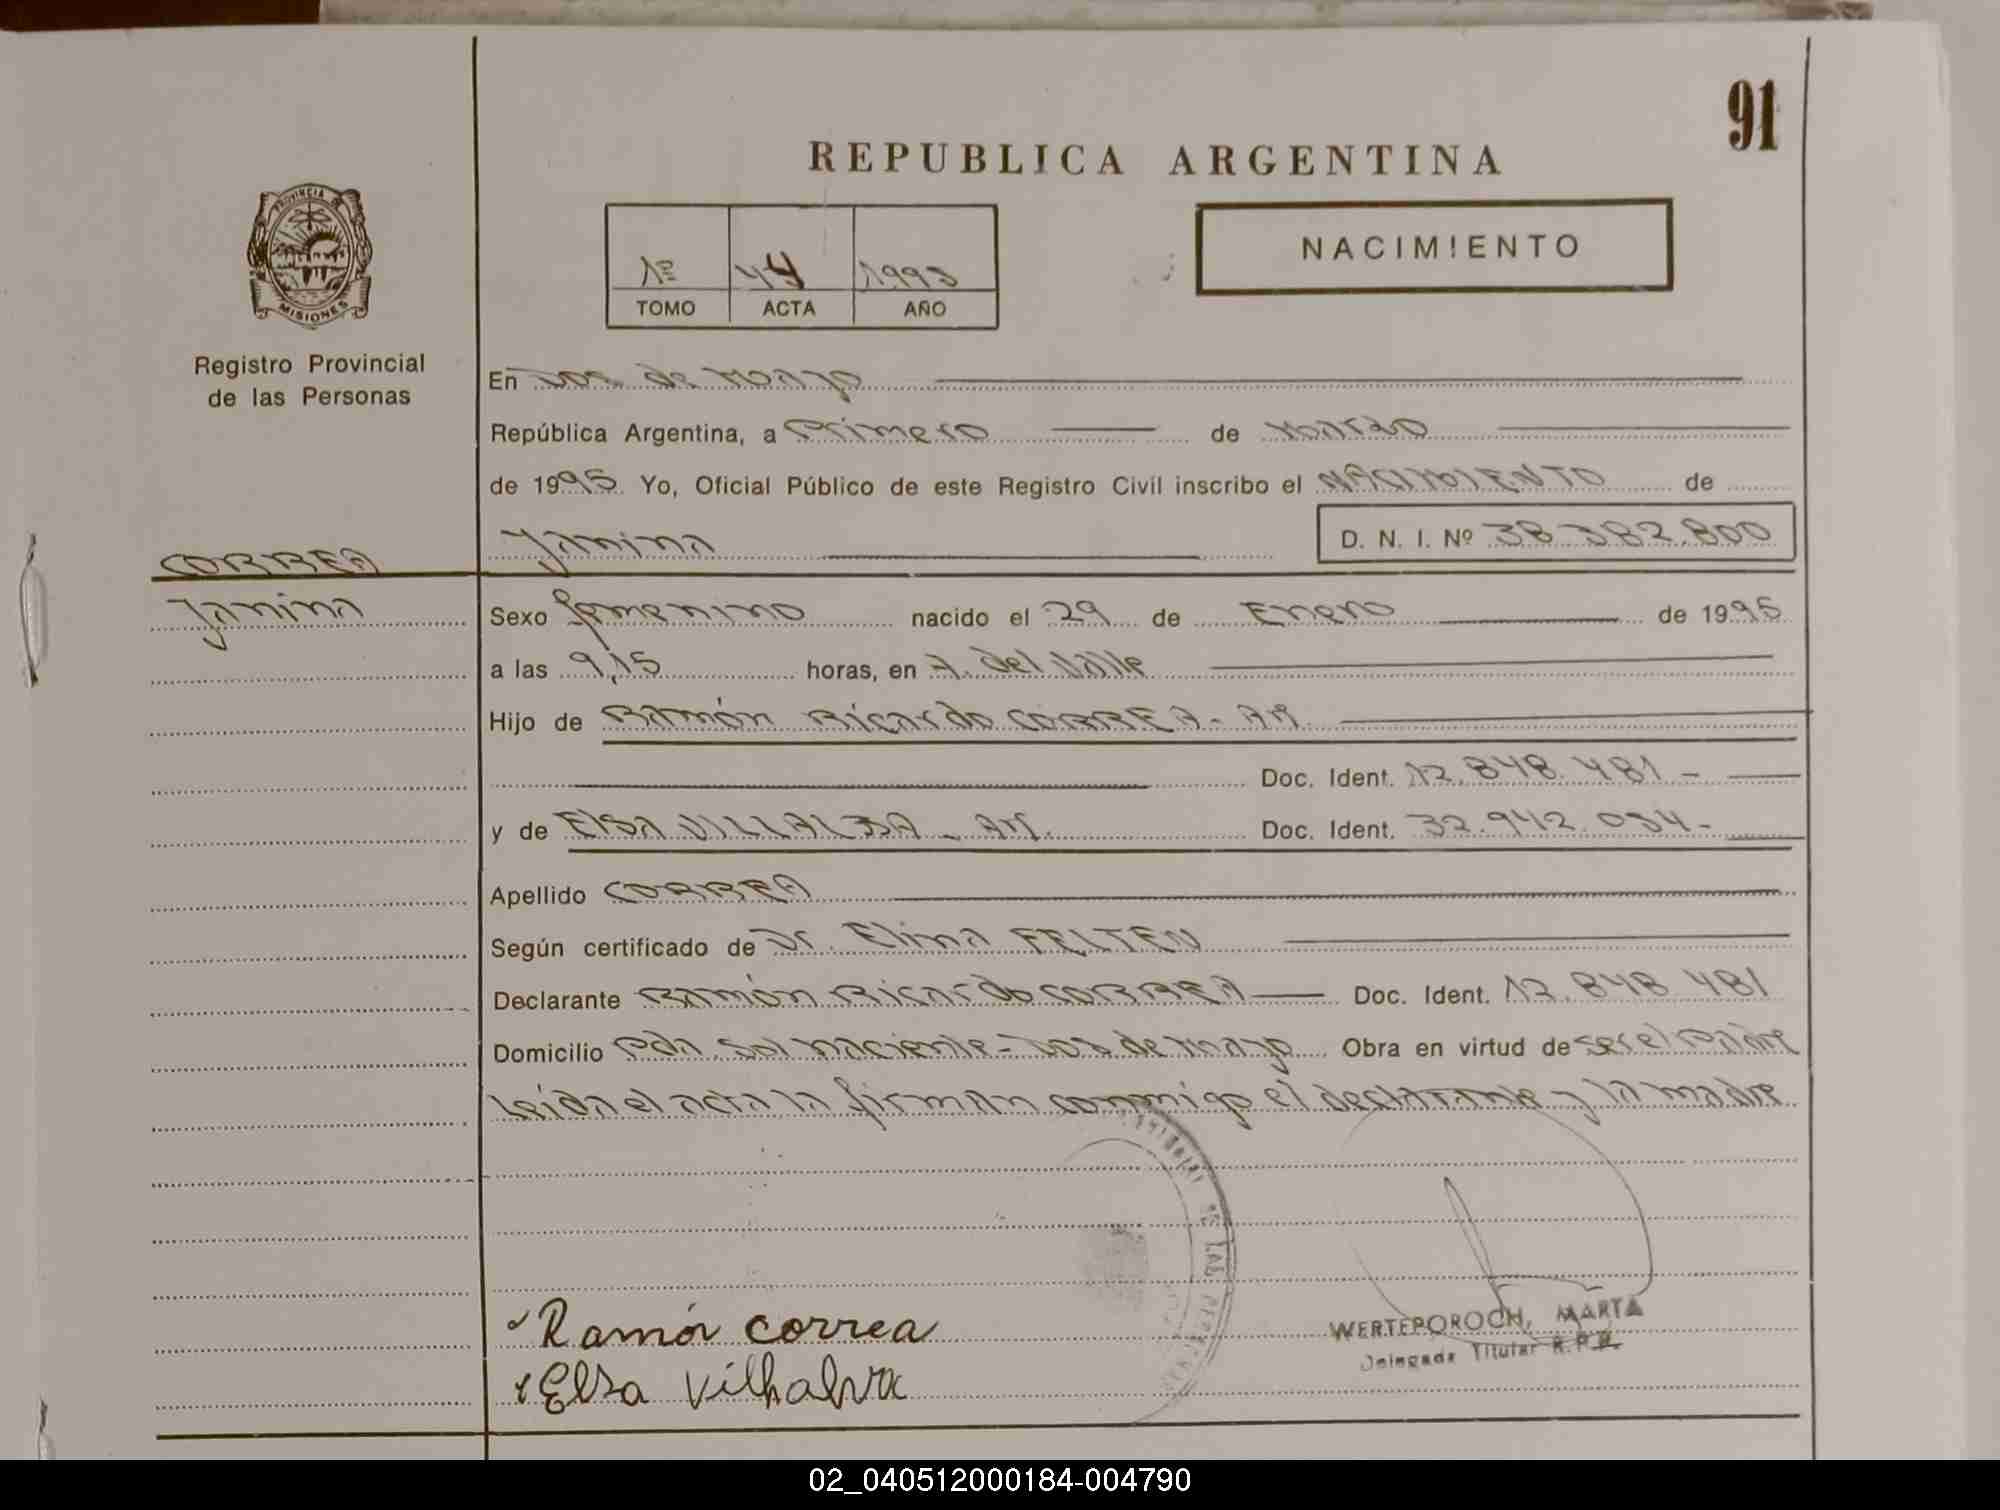 91
REPUBLICA ARGENTINA
PROVINCIA DE
MISIONES
Registro Provincial
de las Personas
1º 44 1995
TOMO ACTA AÑO
NACIMIENTO
En Dos de Mayo
República Argentina, a Primero de Marzo
de 1995 Yo, Oficial Público de este Registro Civil inscribo el NACIMIENTO de
Yanina D. N. I. Nº 38.382.800
CORREA
Yanina
Sexo femenino nacido el 29 de Enero de 1995
a las 9,15 horas, en A. del Valle
Hijo de Ramón Ricardo CORREA - AR.
Doc. Ident. 12.848.481 -
y de Elsa VILLALBA - AR. Doc. Ident. 32.942.034 -
Apellido CORREA
Según certificado de Dr. Elina FELTEN
Declarante Ramón Ricardo CORREA Doc. Ident. 12.848.481
Domicilio Pda. Sol naciente - Dos de Mayo Obra en virtud de ser el Padre
Leida el acta la firman conmigo el declarante y la madre
DE LAS PERSONAS
Ramón Correa
Elsa Vilhalva
WERTEPOROCH, MARTA
Delegada Titular R.P.P.
02_040512000184-004790